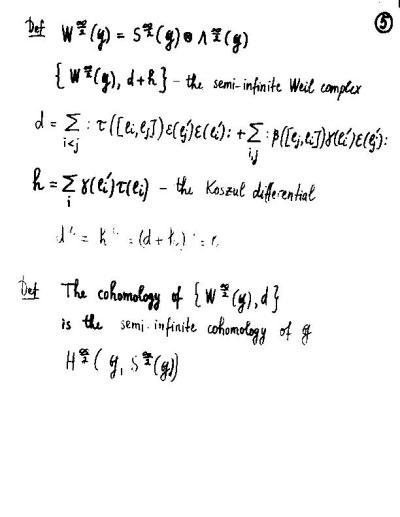 ⑤
Def W^{∞/2}(g) = S^{∞/2}(g) ⊗ Λ^{∞/2}(g)
{ W^{∞/2}(g), d+h } - the semi-infinite Weil complex
d = Σ_{i<j} : τ([e_i, e_j]) ε(e'_j) ε(e'_i) : + Σ_{i,j} : β([e_j, e_i]) γ(e'_i) ε(e'_j) :
h = Σ_i γ(e'_i) τ(e_i) - the Koszul differential
d² = h² = (d+h)² =
Def The cohomology of { W^{∞/2}(g), d }
is the semi-infinite cohomology of g
H^{∞/2}( g, S^{∞/2}(g))